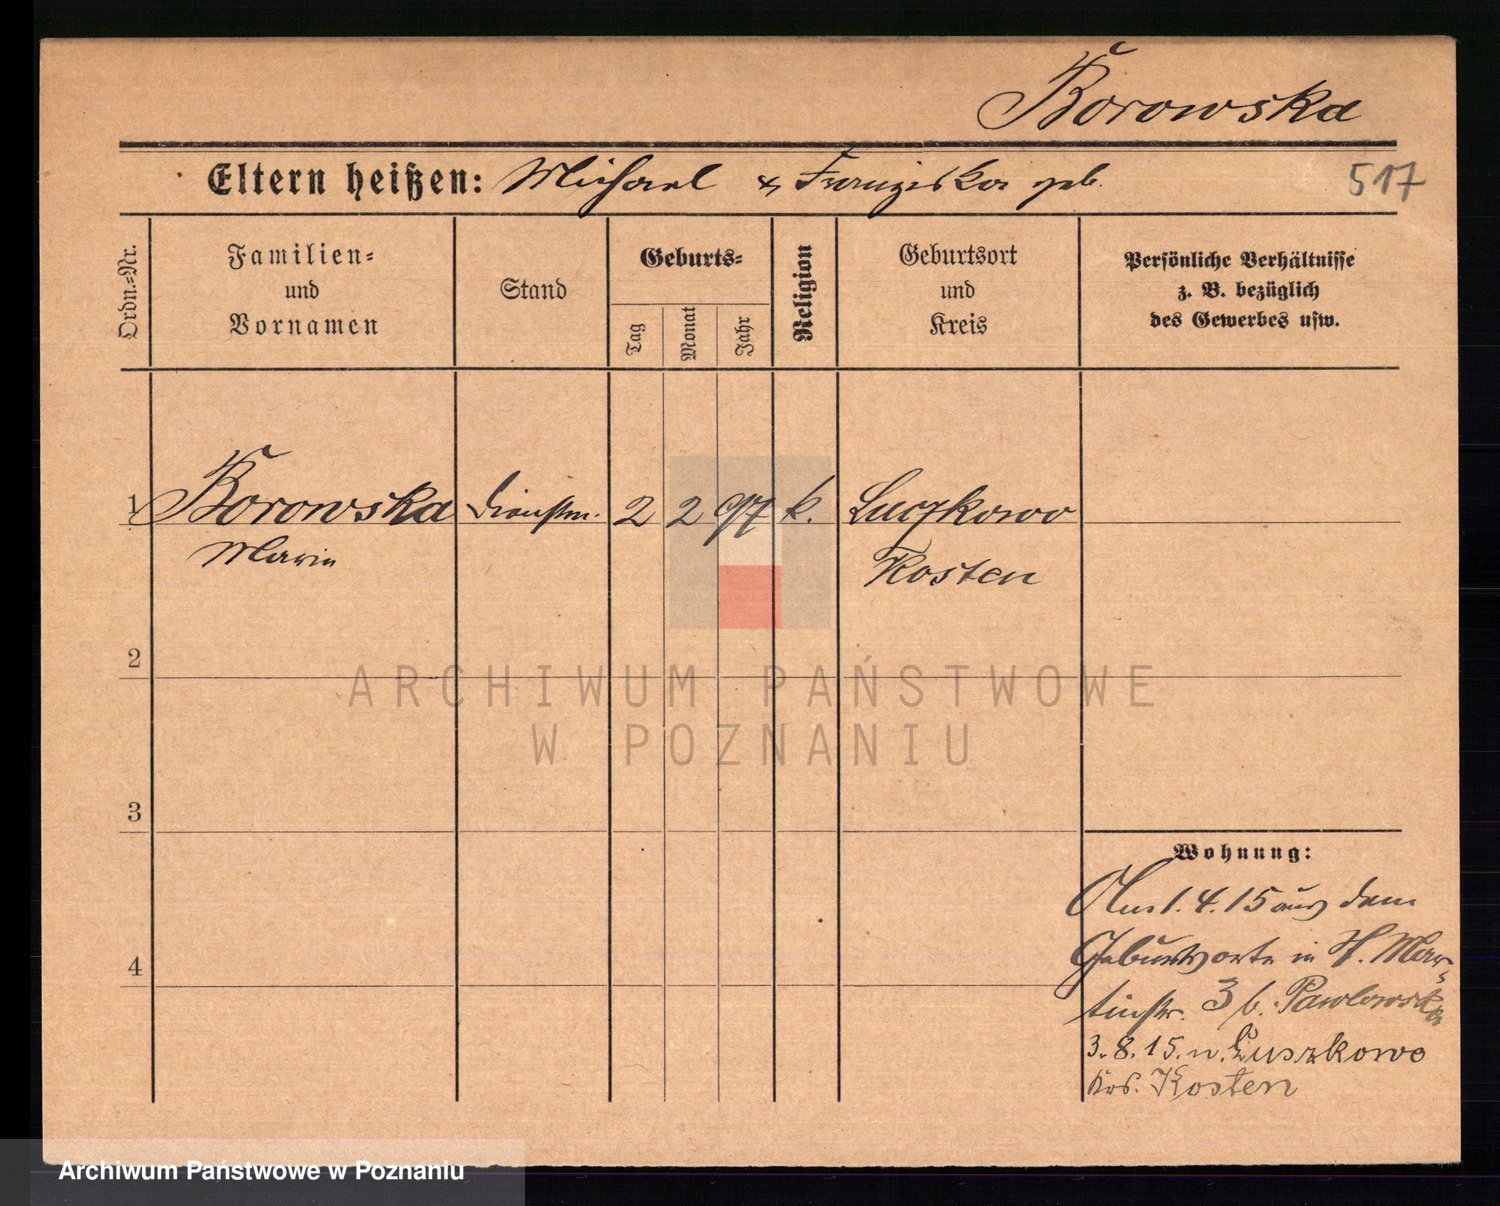 Borowska
Eltern heißen: Michael & Franziska geb.
517
Ordn.-Nr.
Familien-
und
Vornamen
Stand
Geburts-
Tag
Monat
Jahr
Religion
Geburtsort
und
Kreis
Persönliche Verhältnisse
z. B. bezüglich
des Gewerbes usw.
1 Borowska Dienstm. 2 2 97 k. Luczkowo
Marie Kosten
2
ARCHIWUM PAŃSTWOWE
W POZNANIU
3
Wohnung:
1.4.15 aus dem
4 Geburtsorte in St. Mar-
tinstr. 3 b. Pawlowska
3.8.15. n. Luszkowo
Krs. Kosten
Archiwum Państwowe w Poznaniu